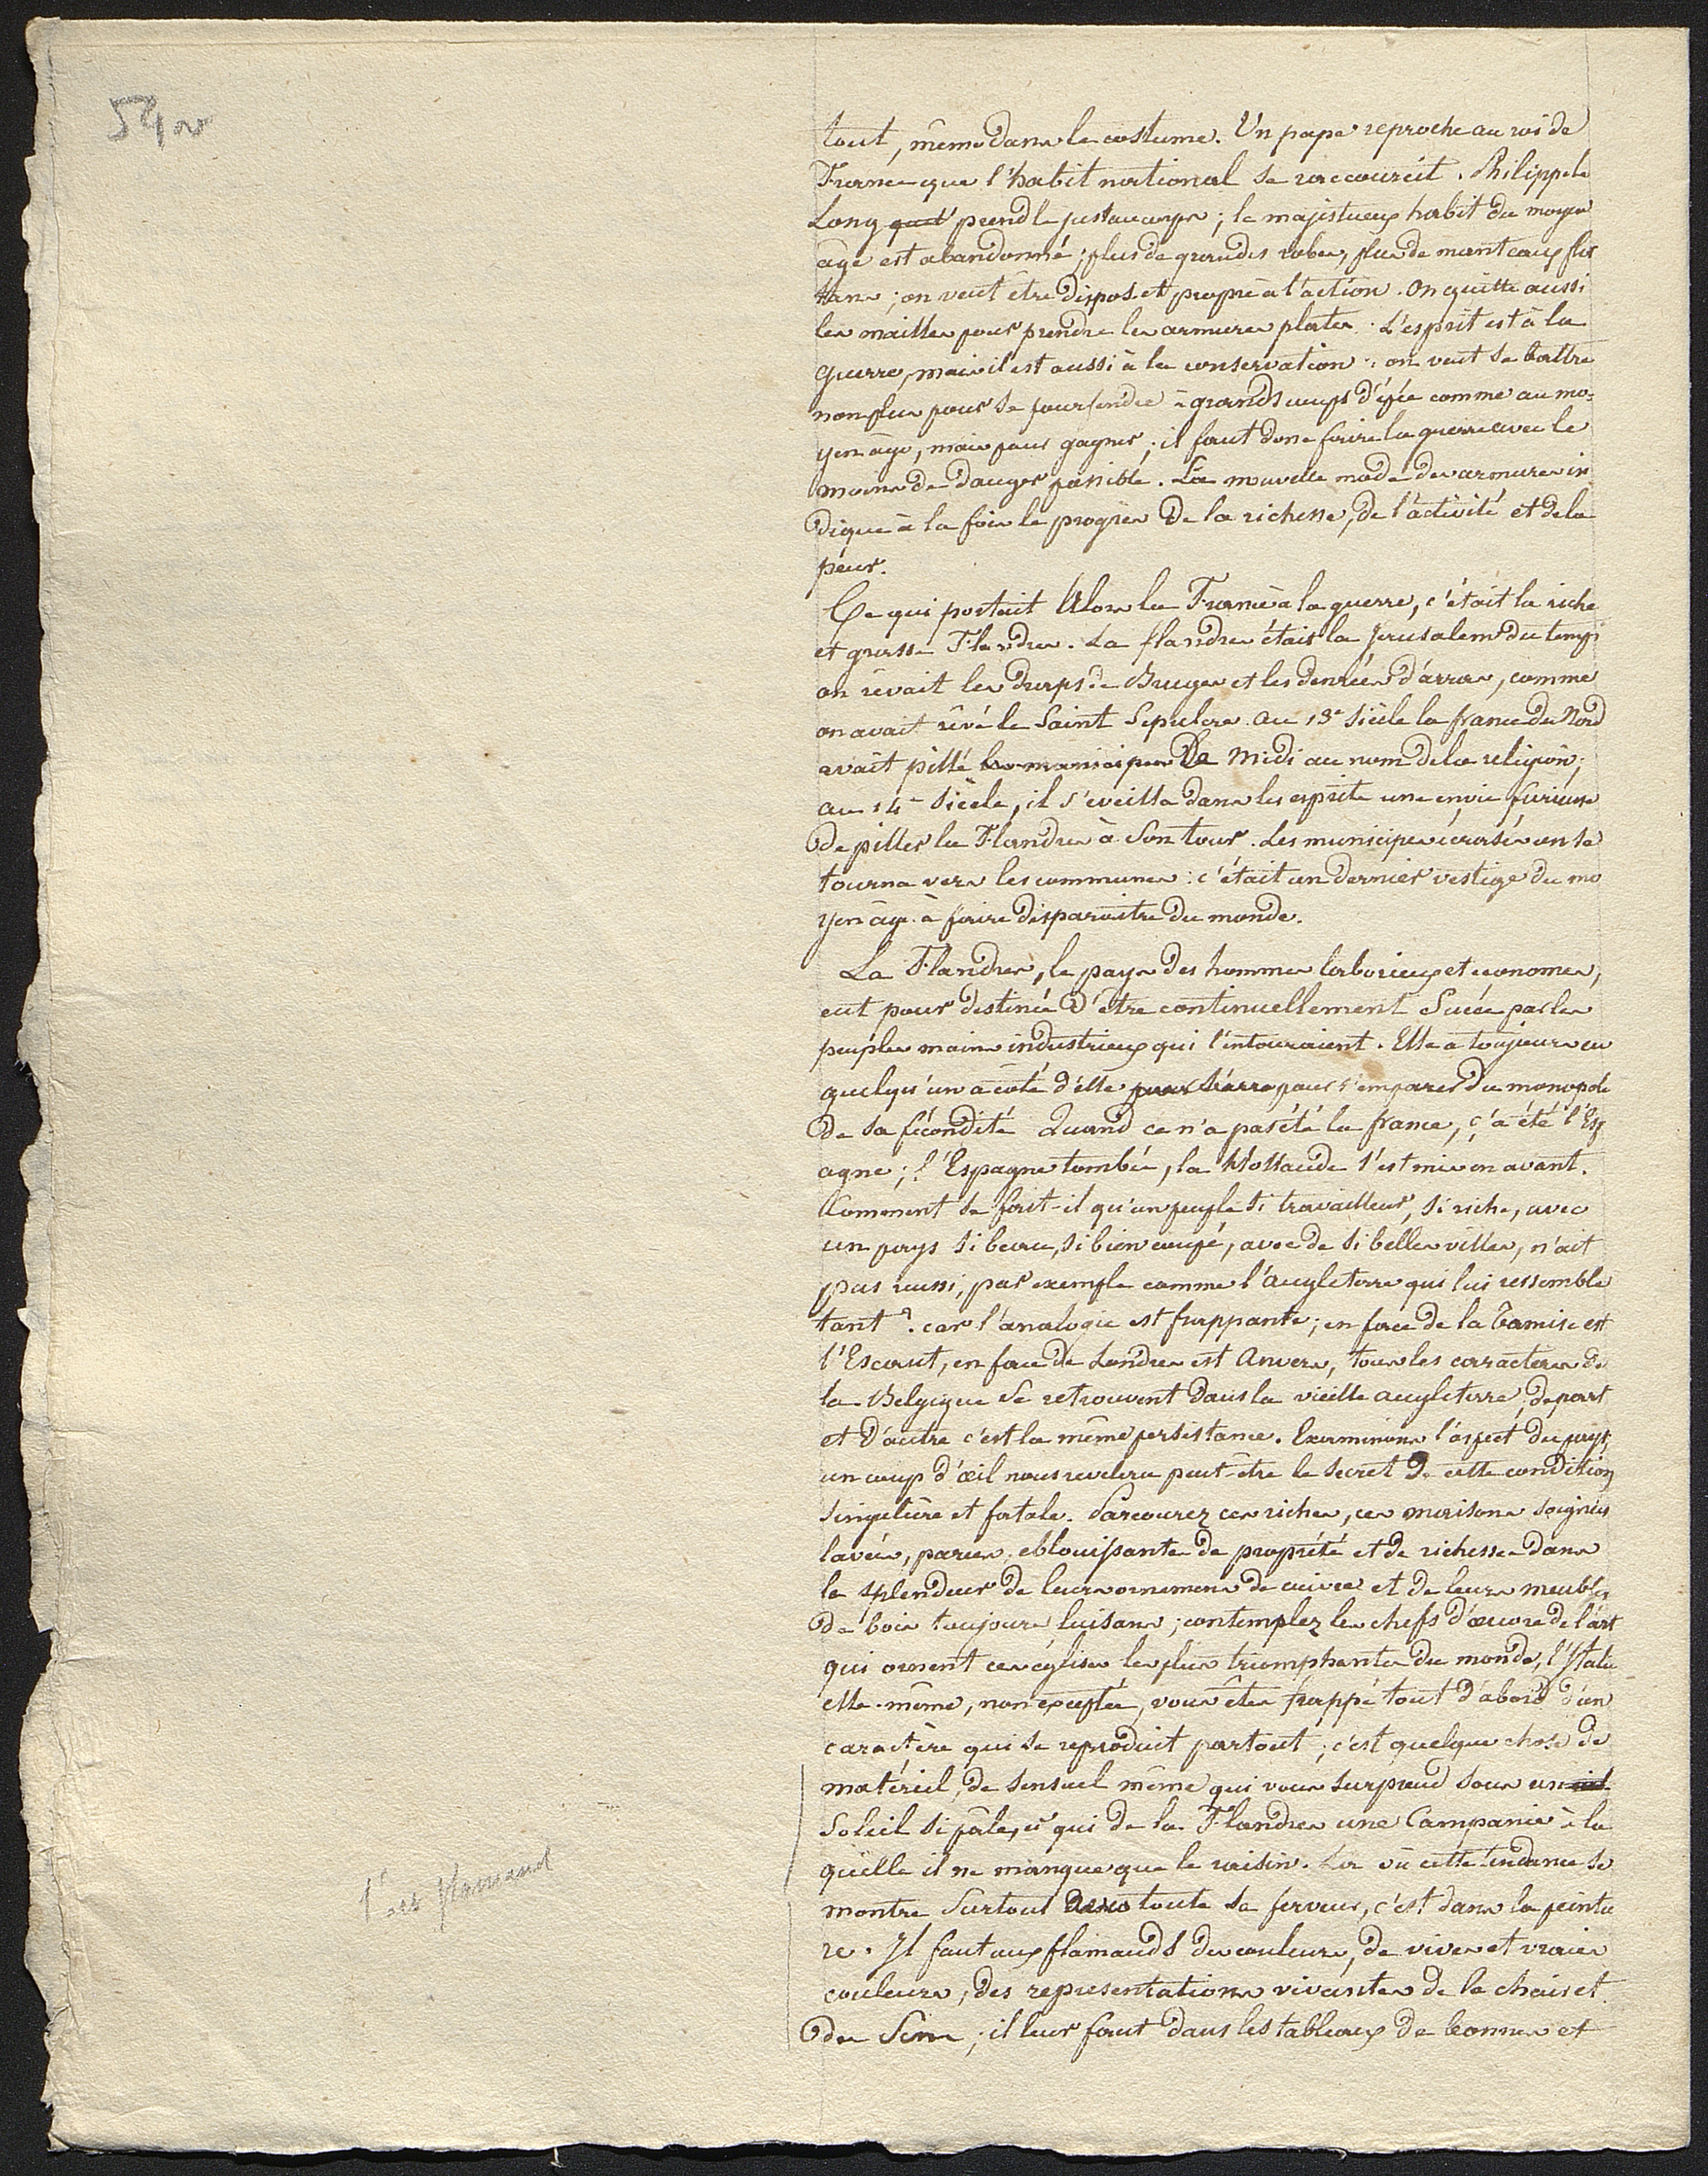 tout, même dans le costume. Un pape reproche au roi de
France que l'habit national se raccourcit. Philippe le
Long prend le justaucorps; le majestueux habit du moyen
âge est abandonné; plus de grandes robes, plus de manteaux flot
tans; on veut être dispos et propre à l'action. On quitte aussi
les mailles pour prendre les armures plates. L'esprit est à la
guerre, mais il est aussi à la conservation: on veut se battre
non plus pour se pourfendre à grands coups d'épée comme au mo-
yen âge, mais pour gagner; il faut donc faire la guerre avec le
moins de danger possible. La nouvelle mode des armures in
dique à la fois le progrès de la richesse, de l'activité et de la
peur.
Ce qui portait alors la France à la guerre, c'était la riche
et grasse Flandre. La flandre était la Jerusalem du temps
on rêvait les draps de Bruges et les denrées d'arras, comme
on avait rêvé le Saint Sepulcre. au 13e siècle la france du Nord
avait pillé les municipes du Midi au nom de la religion;
au 14e siècle, il s'eveilla dans les esprits une envie furieuse
de piller la Flandre à son tour. Les municipes écrasés on se
tourna vers les communes: c'était un dernier vestige du mo
yen âge à faire disparaître du monde.
La Flandre, le pays des hommes laborieux et économes,
eut pour destinée d'être continuellement sucée par les
peuples moins industrieux qui l'entouraient. Elle a toujours eu
quelqu'un à côté d'elle pour s'emparer du monopole
de sa fécondité Quand ce n'a pas été la france, ç'a été l'Esp
agne; l'Espagne tombée, la Hollande s'est mise en avant.
Comment se fait-il qu'un peuple si travailleur, si riche, avec
un pays si beau, si bien coupé, avec de si belles villes, n'ait
pas réussi, par exemple comme l'angleterre qui lui ressemble
tant? car l'analogie est frappante; en face de la Tamise est
l'Escaut, en face de Londres est Anvers, tous les caractères de
la Belgique se retrouvent dans la vieille angleterre, de part
et d'autre c'est la même persistance. Examinons l'aspect du pays,
un coup d'œil nous revelera peut-être le secret de cette condition
singulière et fatale. Parcourez ces riches, ces maisons soignées
lavées, parées, eblouissantes de propreté et de richesse dans
la splendeur de leurs ornemens de cuivre et de leurs meubles
de bois toujours luisans; contemplez les chefs d'œuvre de l'art
qui ornent ces églises les plus triomphantes du monde, l'Italie
elle-même, non exceptée, vous êtes frappé tout d'abord d'un
caractère qui se reproduit partout; c'est quelque chose de
matériel, de sensuel même qui vous surprend sous un
Soleil si pâle, et qui de la Flandre une Campanie à la
quelle il ne manque que le raisin. Là où cette tendance se
montre surtout dans toute sa ferveur, c'est dans la peintu
re. Il faut aux flamands des couleurs, de vives et vraies
couleurs, des representations vivantes de la chair et
du Sein; il leur faut dans les tableaux de bonnes et
l'art flamand